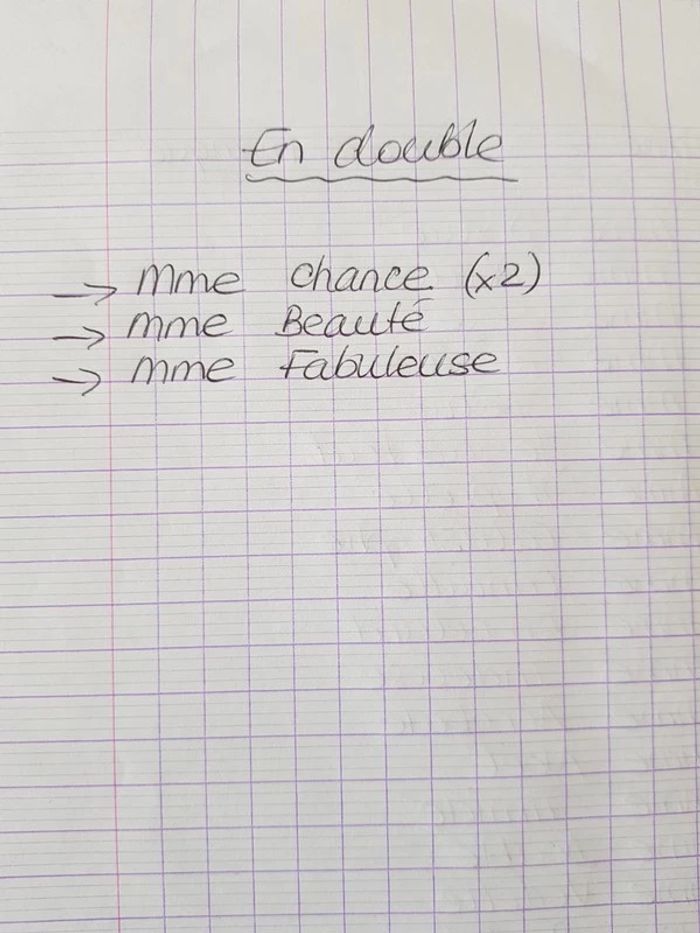 En double
→ Mme Chance (x2)
→ Mme Beauté
→ Mme Fabuleuse